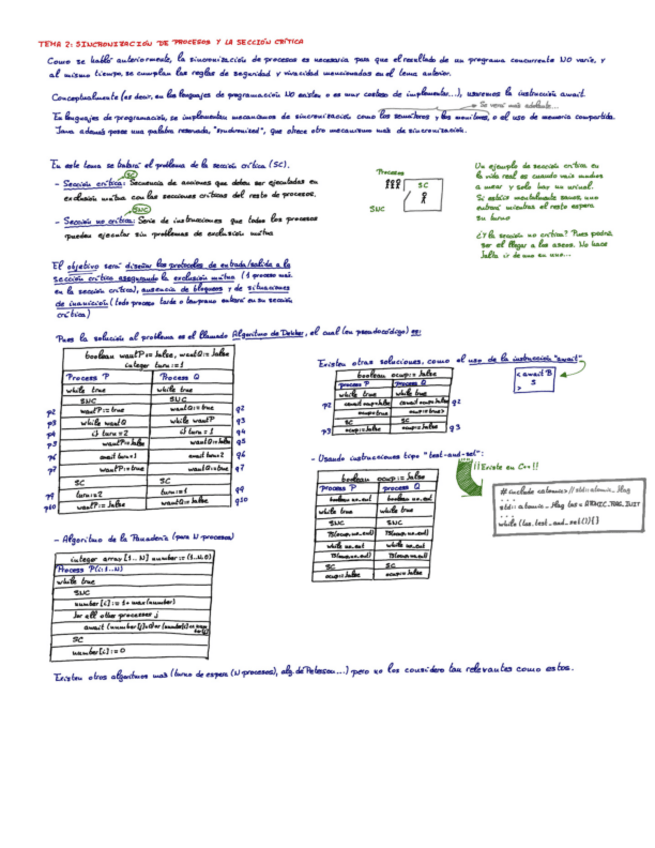 TEMA 2: SINCRONIZACIÓN DE PROCESOS Y LA SECCIÓN CRÍTICA
Como se habló anteriormente, la sincronización de procesos es necesaria para que el resultado de un programa concurrente NO varíe, y
al mismo tiempo, se cumplan las reglas de seguridad y vivacidad mencionadas en el tema anterior.
Conceptualmente (es decir, en los lenguajes de programación NO existen o es muy costoso de implementar...), usaremos la instrucción await.
Se verá más adelante...
En lenguajes de programación, se implementan mecanismos de sincronización como los semáforos y los monitores, o el uso de memoria compartida.
Java además posee una palabra reservada, "synchronized", que ofrece otro mecanismo más de sincronización.
En este tema se tratará el problema de la sección crítica (SC).
SC
- Sección crítica: Secuencia de acciones que deben ser ejecutadas en
exclusión mutua con las secciones críticas del resto de procesos.
SNC
- Sección no crítica: Serie de instrucciones que todos los procesos
pueden ejecutar sin problemas de exclusión mutua
Procesos
SC
SNC
Un ejemplo de sección crítica en
la vida real es cuando vais muchos
a mear y solo hay un urinal.
Si estáis mentalmente sanos, uno
entrará mientras el resto espera
su turno
¿Y la sección no crítica? Pues podría
ser el llegar a los aseos. No hace
falta ir de uno en uno...
El objetivo será diseñar los protocolos de entrada/salida a la
sección crítica asegurando la exclusión mutua (1 proceso max.
en la sección crítica), ausencia de bloqueos y de situaciones
de inanición (todo proceso tarde o temprano entrará en su sección
crítica)
Pues la solución al problema es el llamado Algoritmo de Dekker, el cual (en pseudocódigo) es:
boolean wantP:= false, wantQ:= false
integer turn:= 1
Process P Process Q
while true while true
SNC SNC
p2 wantP:= true wantQ:= true q2
p3 while wantQ while wantP q3
p4 if turn = 2 if turn = 1 q4
p5 wantP:= false wantQ:= false q5
p6 await turn=1 await turn=2 q6
p7 wantP:= true wantQ:= true q7
SC SC
p9 turn:=2 turn:=1 q9
p10 wantP:= false wantQ:= false q10
Existen otras soluciones, como el uso de la instrucción "await"
boolean ocup:= false
process P process Q
while true while true
p2 q2
ocup:=true ocup:=true>
SC SC
p3 ocup:=false ocup:=false q3
< await B
S
>
- Usando instrucciones tipo "test-and-set":
¡¡Existe en C++!!
boolean ocup:= false
process P process Q
boolean no_ent boolean no_ent
while true while true
SNC SNC
TS(ocup, no_ent) TS(ocup, no_ent)
while no_ent while no_ent
TS(ocup, no_ent) TS(ocup, no_ent)
SC SC
ocup:= false ocup:= false
#include <atomic> // std::atomic_flag
...
std::atomic_flag = ATOMIC_FLAG_INIT
...
while (.test_and_set()){}
- Algoritmo de la Panadería (para N procesos)
integer array [1..N] number:= (1..N,0)
Process P(i:1..N)
while true
SNC
number[i]:= 1+ max(number)
for all other processes j
await (number[j]=0) or (number[i]
SC
number[i]:= 0
Existen otros algoritmos más (turno de espera (N procesos), alg. de Peterson...) pero no los considero tan relevantes como estos.